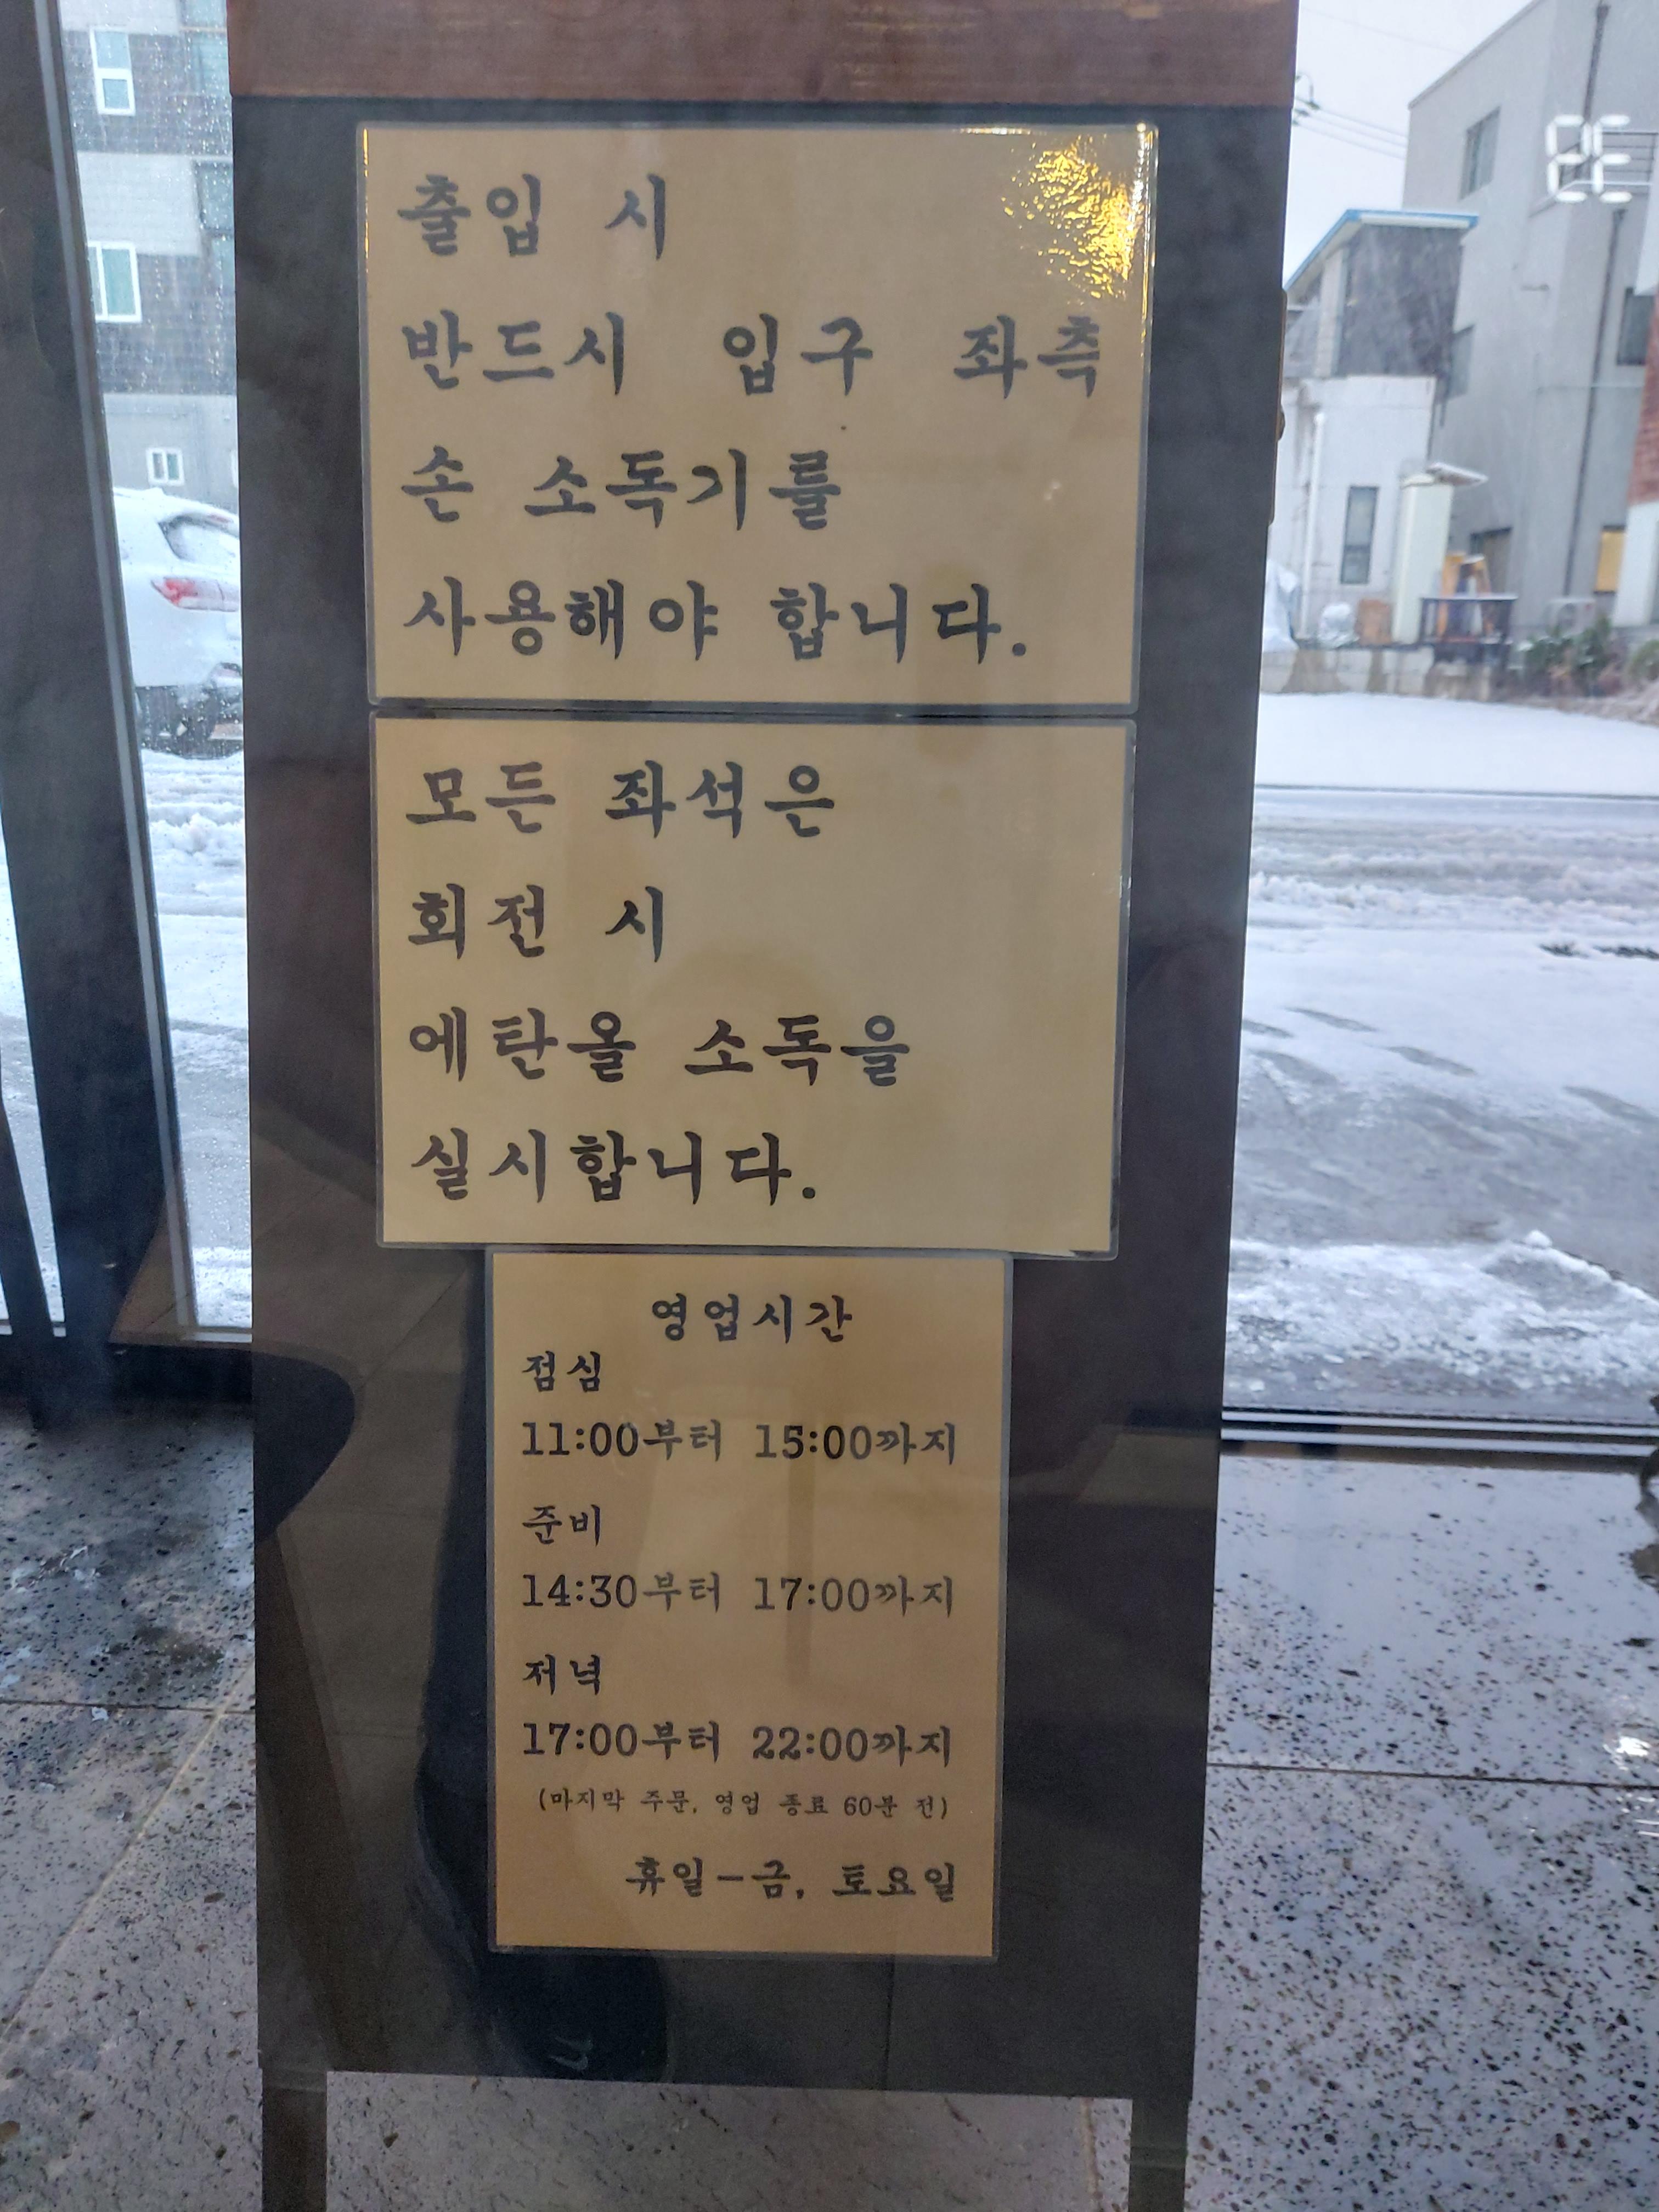 출입 시
반드시 입구 좌측
손 소독기를
사용해야 합니다.
모든 좌석은
회전 시
에탄올 소독을
실시합니다.
영업시간
점심
11:00부터 15:00까지
준비
14:30부터 17:00까지
저녁
17:00부터 22:00까지
(마지막 주문, 영업 종료 60분 전)
휴일-금, 토요일